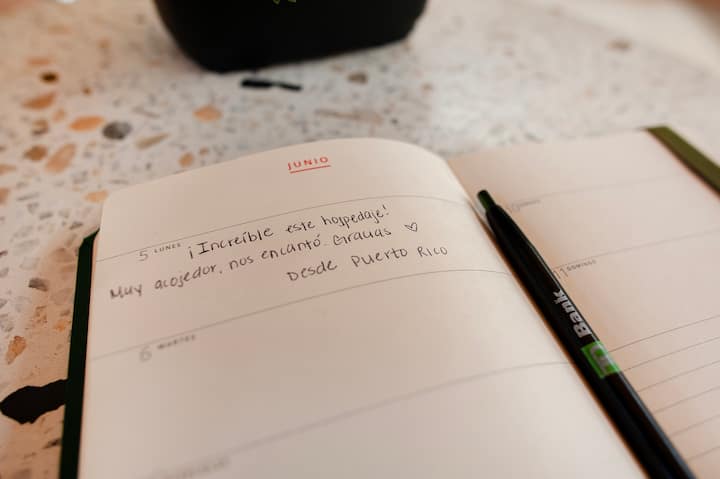 JUNIO
5 LUNES
¡Increíble este hospedaje!
Muy acojedor, nos encantó. Gracias ♡
Desde Puerto Rico
6 MARTES
11 DOMINGO
Bank